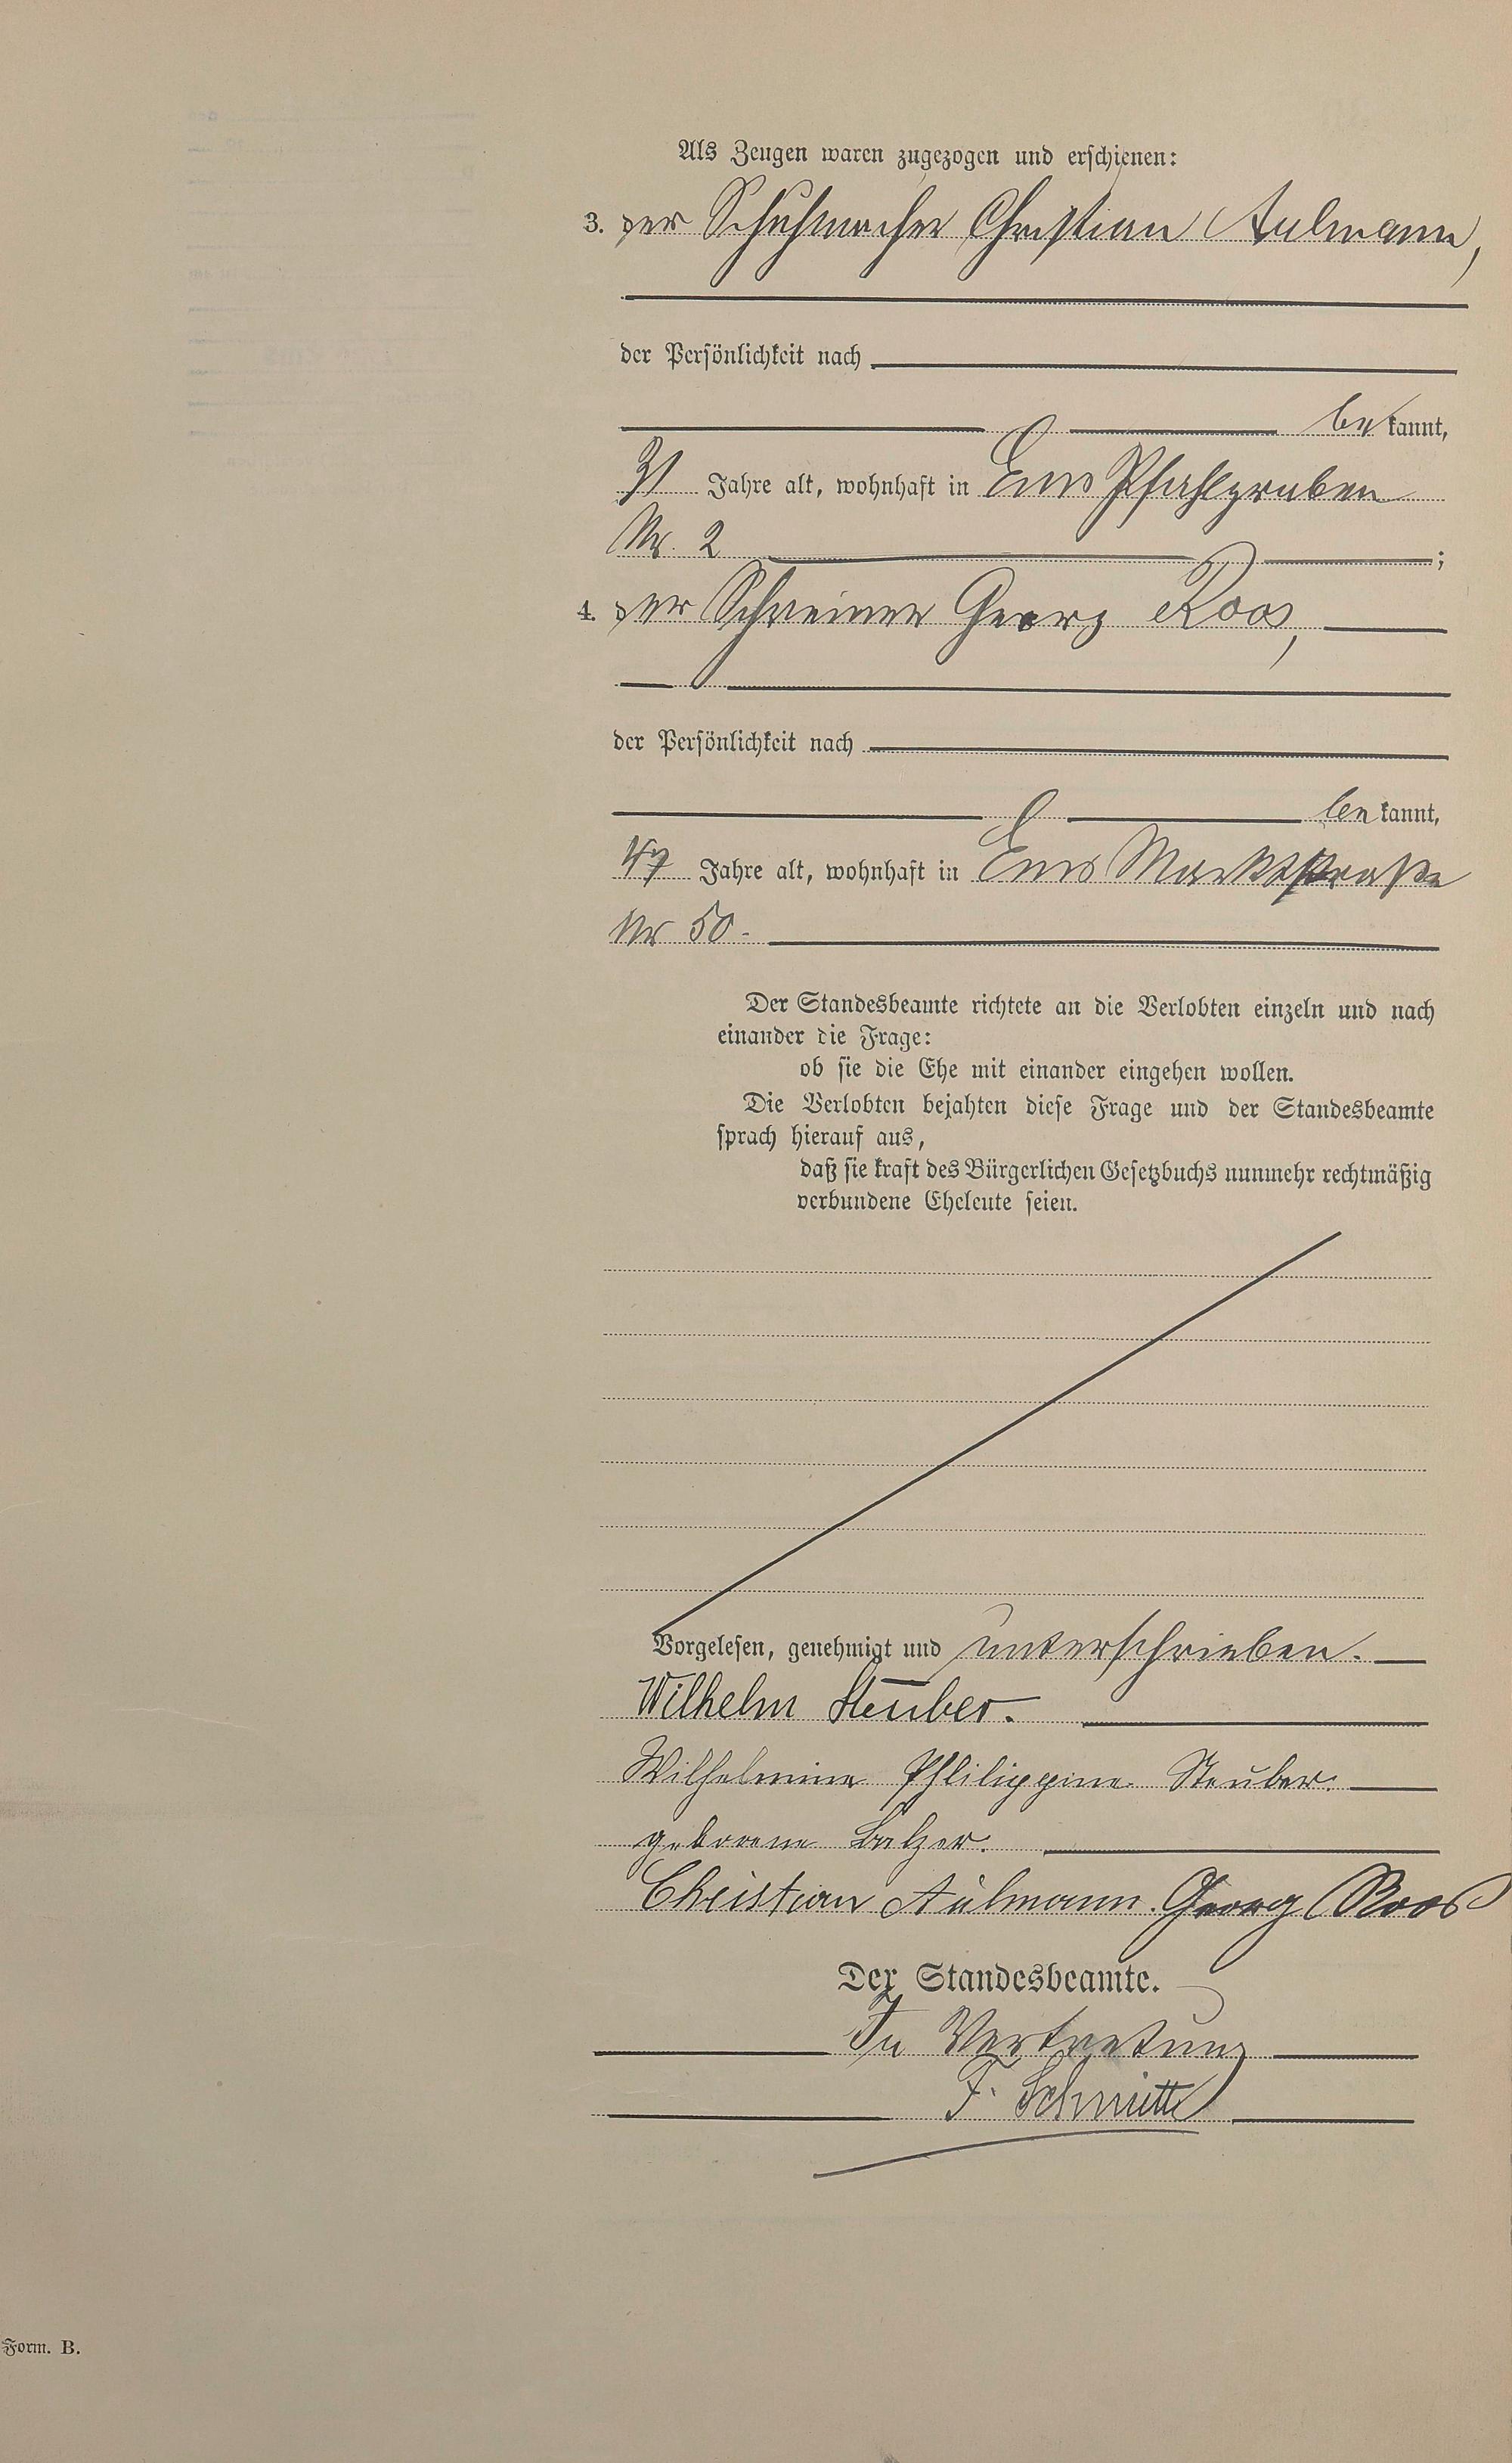 Als Zeugen waren zugezogen und erschienen:
3. der Schuhmacher Christian Aulmann,
der Persönlichkeit nach
be kannt,
31 Jahre alt, wohnhaft in Ems Pfahlgraben
Nr. 2 ;
4. der Schreiner Georg Roos,
der Persönlichkeit nach
be kannt,
47 Jahre alt, wohnhaft in Ems Marktstraße
Nr 50.
Der Standesbeamte richtete an die Verlobten einzeln und nach
einander die Frage:
ob sie die Ehe mit einander eingehen wollen.
Die Verlobten bejahten diese Frage und der Standesbeamte
sprach hierauf aus,
daß sie kraft des Bürgerlichen Gesetzbuchs nunmehr rechtmäßig
verbundene Eheleute seien.
Vorgelesen, genehmigt und unterschrieben.
Wilhelm Steuber.
Wilhelmine Philippine Steuber.
geborene Balzer.
Christian Aulmann. Georg Roos
Der Standesbeamte.
In Vertretung
F. Schmitt
Form. B.